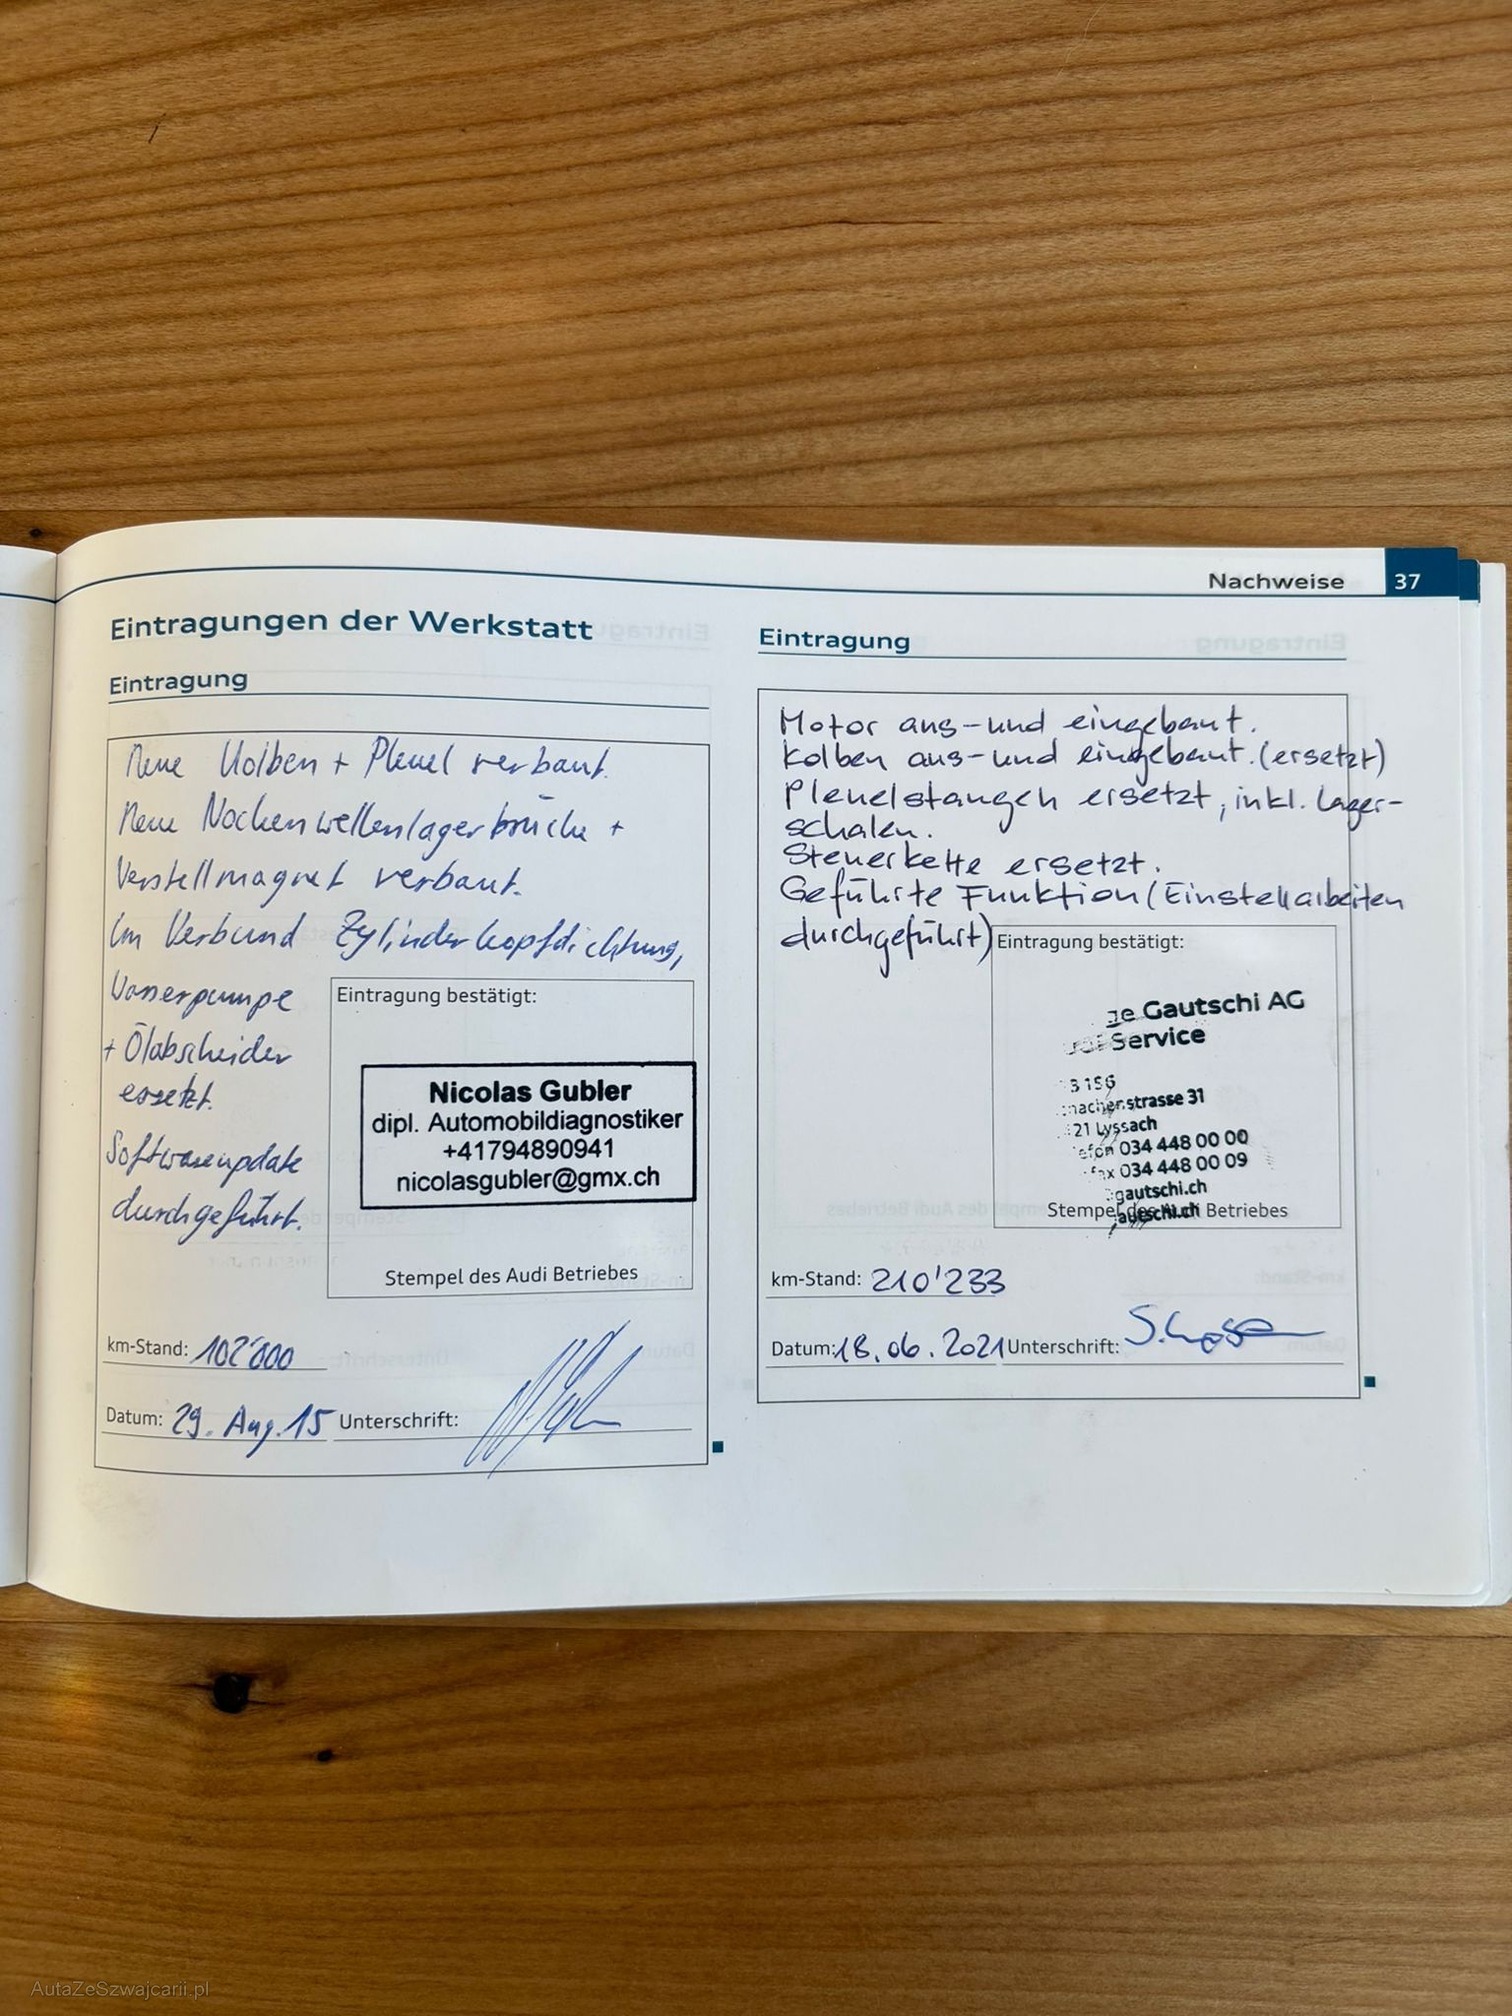 Nachweise 37
Eintragungen der Werkstatt
Eintragung
Neue Kolben + Pleuel verbaut.
Neue Nockenwellenlagerbrücke +
Verstellmagnet verbaut.
Im Verbund Zylinderkopfdichtung,
Wasserpumpe
+ Ölabscheider
ersetzt.
Softwareupdate
durchgeführt.
Eintragung bestätigt:
Nicolas Gubler
dipl. Automobildiagnostiker
+41794890941
nicolasgubler@gmx.ch
Stempel des Audi Betriebes
km-Stand: 102'000
Datum: 29. Aug. 15 Unterschrift:
Eintragung
Motor aus- und eingebaut.
Kolben aus- und eingebaut. (ersetzt)
Pleuelstangen ersetzt, inkl. Lager-
schalen.
Steuerkette ersetzt.
Geführte Funktion (Einstellarbeiten
durchgeführt)
Eintragung bestätigt:
ge Gautschi AG
Service
3156
machenstrasse 31
21 Lyssach
efon 034 448 00 00
fax 034 448 00 09
gautschi.ch
autschi.ch
Stempel des Audi Betriebes
km-Stand: 210'233
Datum: 18.06.2021 Unterschrift:
AutaZeSzwajcarii.pl